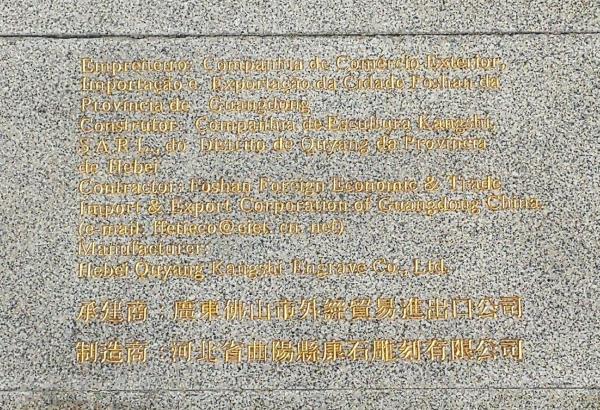 Empreiteiro: Companhia de Comércio Exterior,
Importação e Exportação da Cidade Foshan da
Província de Guangdong
Construtor: Companhia de Escultura Kangshi,
S.A.R.L., do Distrito de Quyang da Província
de Hebei
Contractor: Foshan Foreign Economic & Trade
Import & Export Corporation of Guangdong China.
(e-mail: @ cn. net)
Manufacturer:
Hebei Quyang Kangshi Engrave Co., Ltd.
承建商：廣東佛山市外經貿易進出口公司
製造商：河北省曲陽縣康石雕刻有限公司